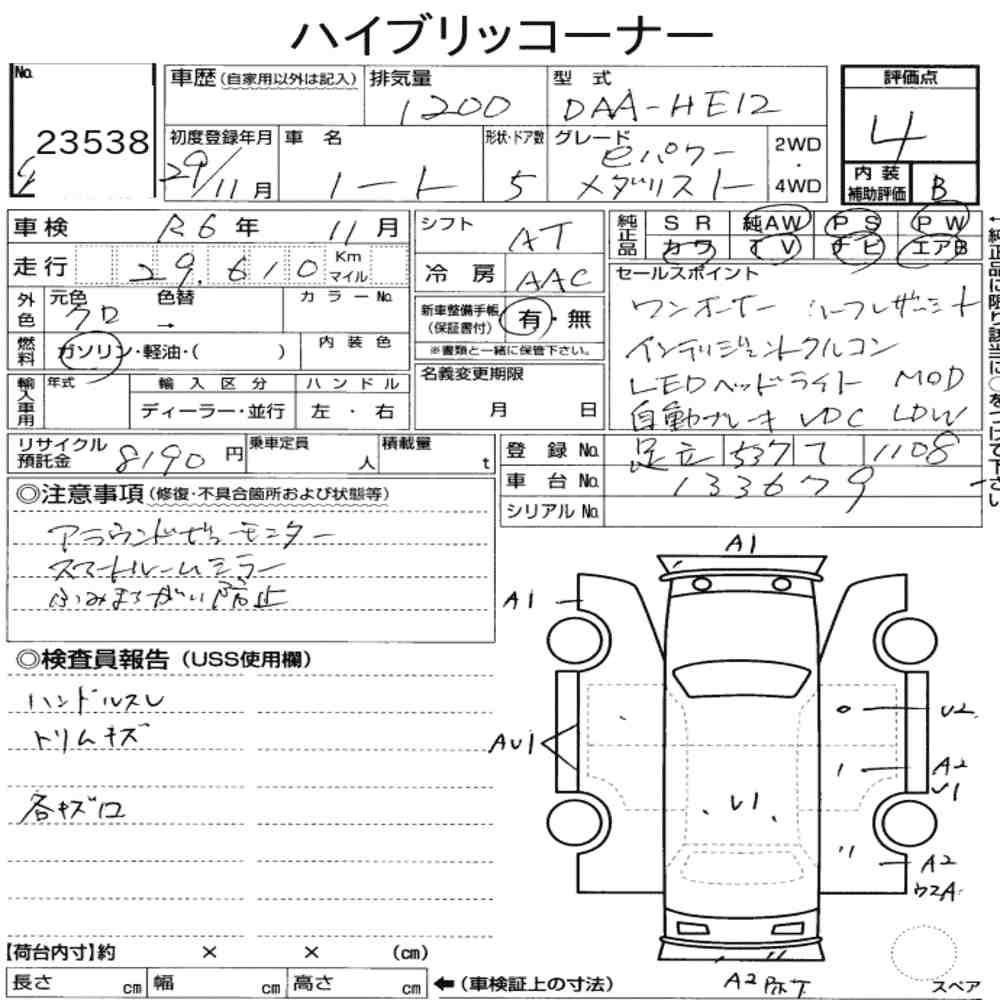 ハイブリッコーナー
No. 23538
車歴(自家用以外は記入)
排気量 1200
型式 DAA-HE12
評価点 4
内装補助評価 B
初度登録年月 29/11月
車名 ノート
形状・ドア数 5
グレード eパワー メダリスト
2WD・4WD
車検 R6年 11月
走行 29,610 Km マイル
外色 元色 クロ 色替 → カラーNo.
燃料 ガソリン・軽油・( ) 内装色
輸入車用 年式 輸入区分 ディーラー・並行 ハンドル 左・右
シフト AT
冷房 AAC
新車整備手帳(保証書付) 有・無
※書類と一緒に保管下さい。
名義変更期限 月 日
純正品 SR 純AW PS PW
カワ TV ナビ エアB
←純正品に限り該当に○をつけて下さい
セールスポイント
ワンオーナー ハーフレザーシート
インテリジェントクルコン
LEDヘッドライト MOD
自動ブレーキ VDC LDW
リサイクル預託金 8190円
乗車定員 人
積載量 t
登録No. 足立 537 て 1108
車台No. 133679
シリアルNo.
◎注意事項(修復・不具合箇所および状態等)
アラウンドビューモニター
スマートルームミラー
ふみまちがい防止
◎検査員報告(USS使用欄)
ハンドルスレ
トリムキズ
各キズ凹
A1
A1
AU1
U2
A2
U1
U1
A2
A2
スペア
【荷台内寸】約 × × (cm)
長さ cm 幅 cm 高さ cm ←(車検証上の寸法)